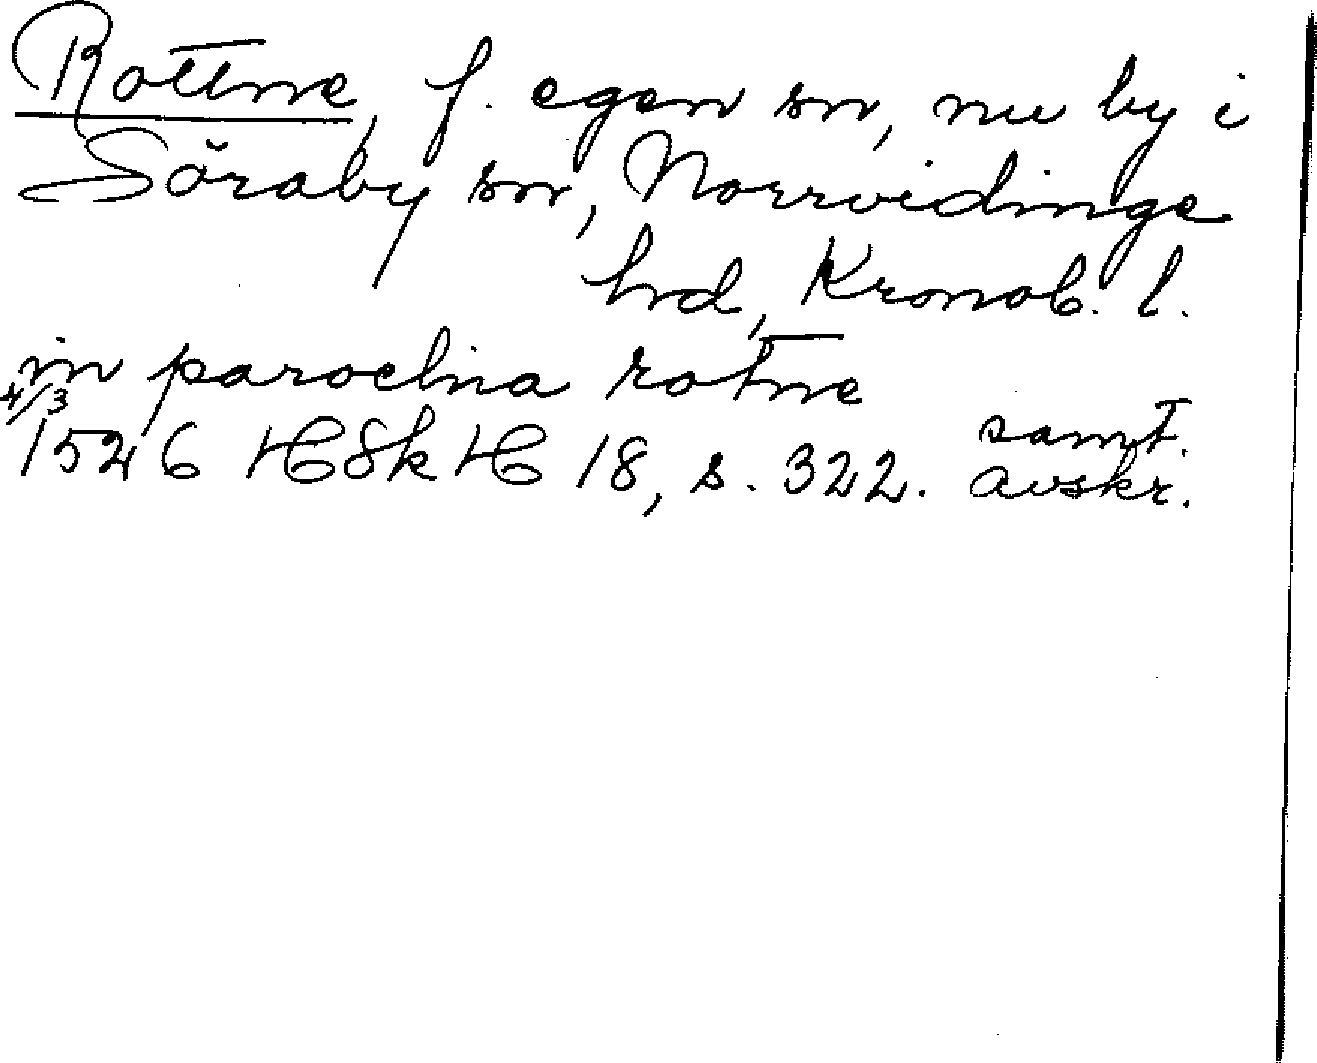 Rottne, f. egen sn, nu by i
Söraby sn, Norrvidinge
hd, Kronob. l.
in parochia rotne
4/3
1526 HSkH 18, s. 322. samt. avskr.